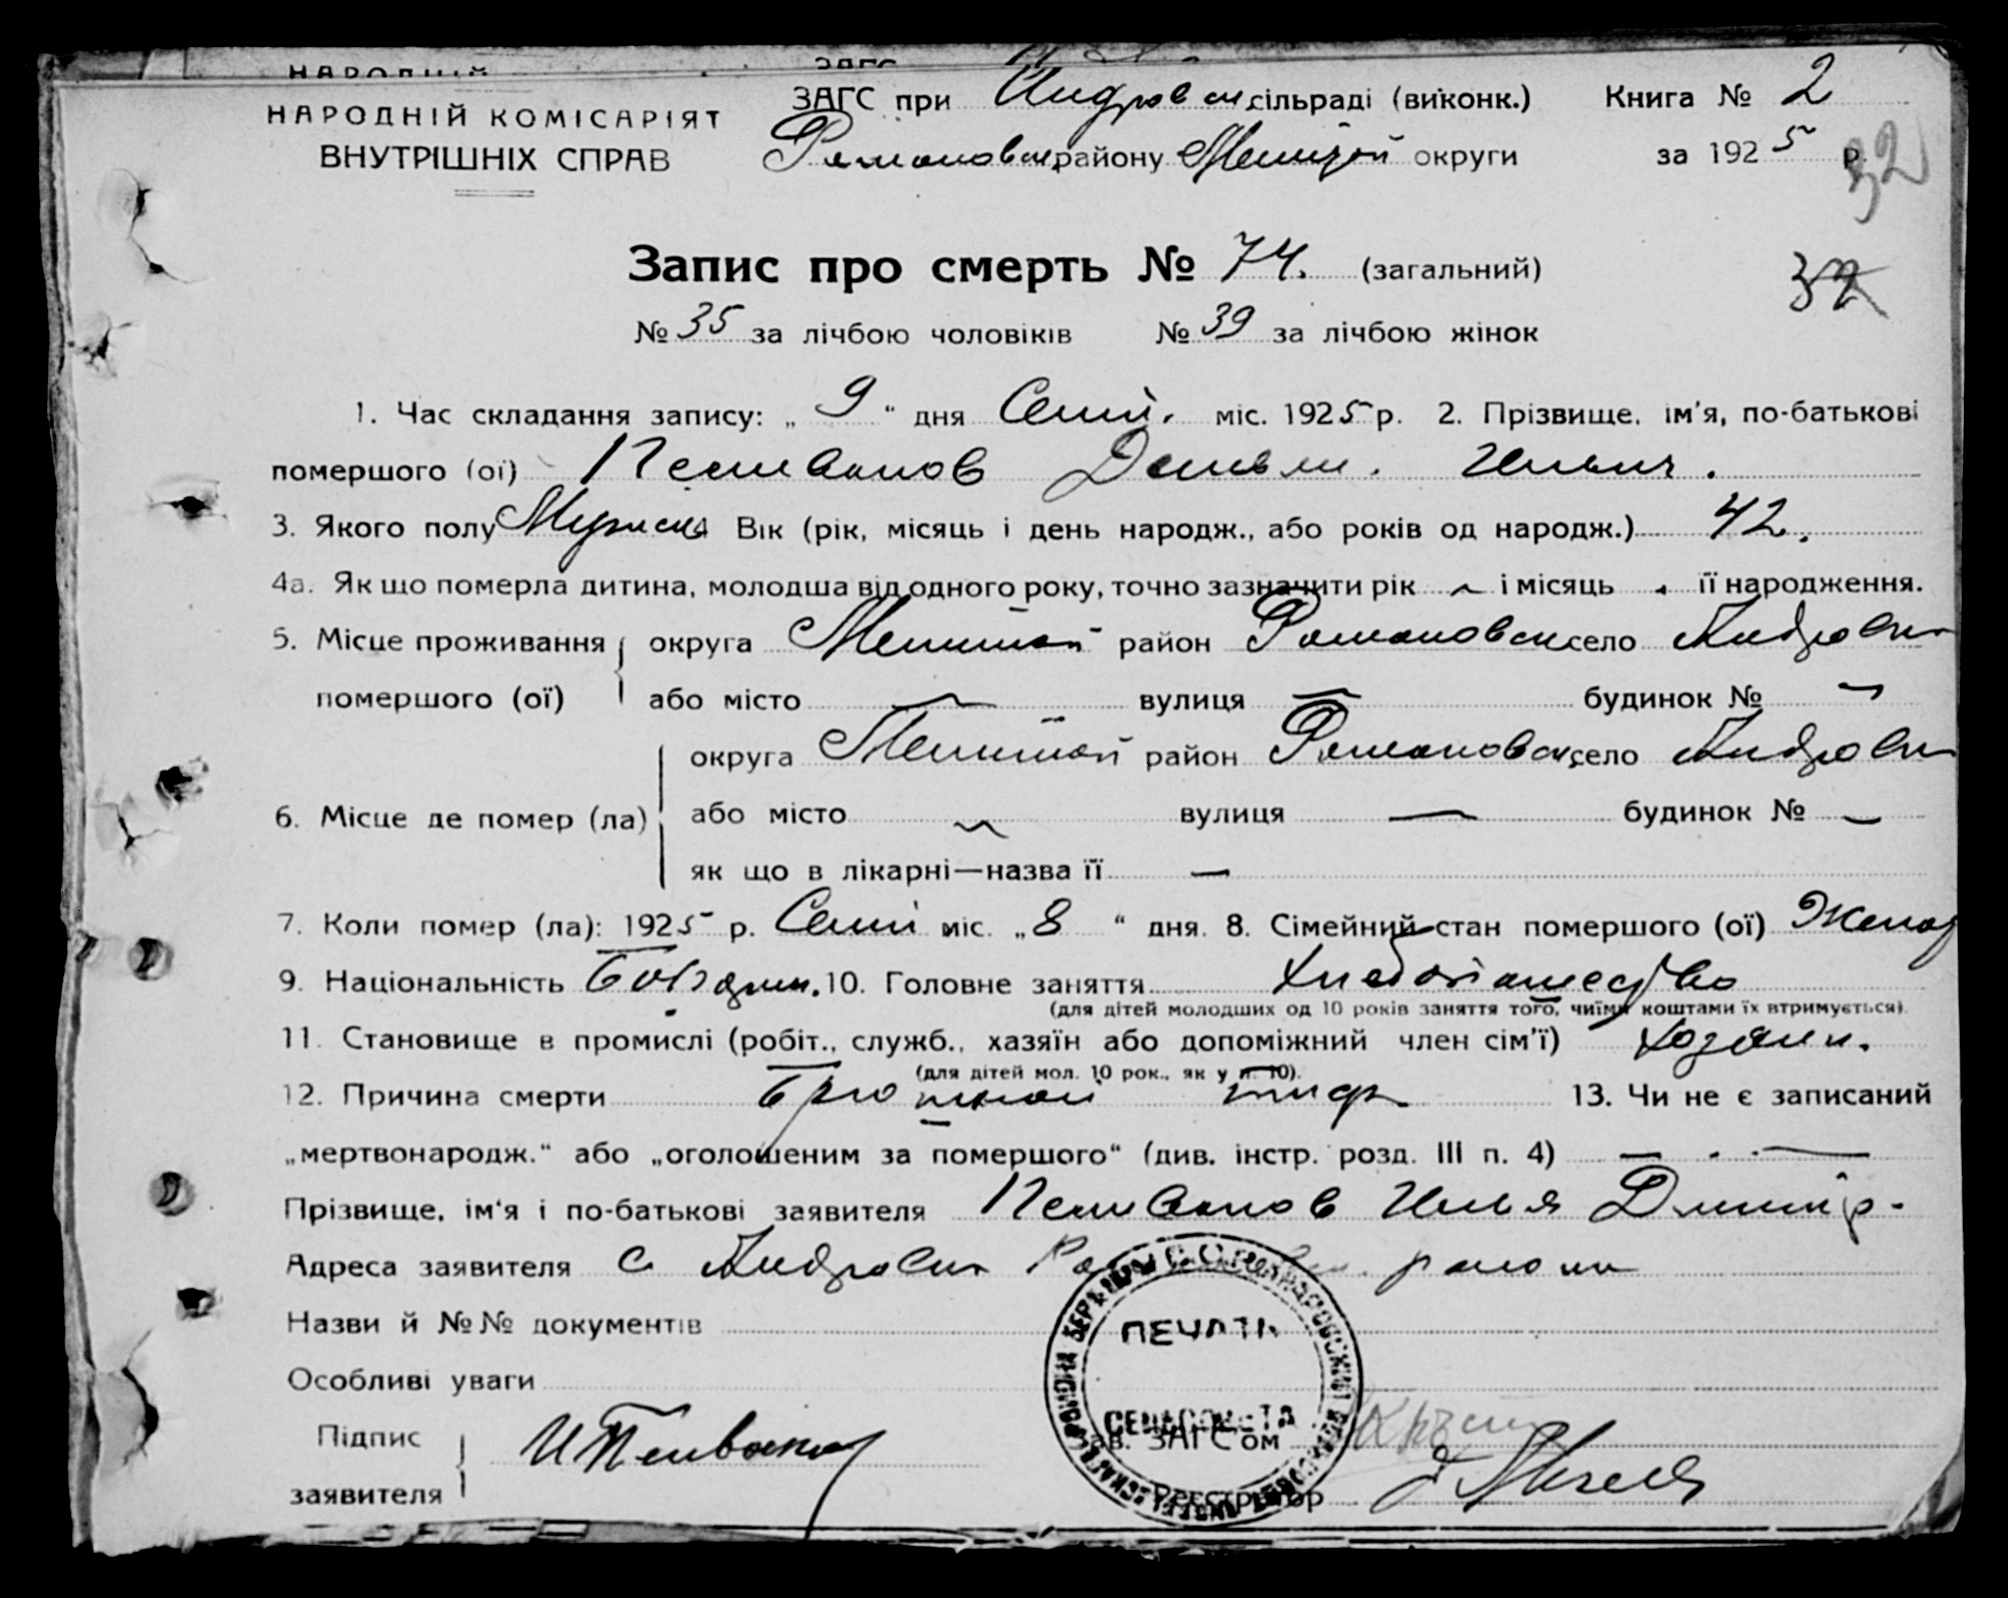 НАРОДНІЙ КОМІСАРІЯТ
ВНУТРІШНІХ СПРАВ
ЗАГС при Андровск сільраді (виконк.) Книга № 2
Романовск району Мелитой округи за 1925 р.
32
Запис про смерть № 74. (загальний)
32
№ 35 за лічбою чоловіків № 39 за лічбою жінок
1. Час складання запису: „ 9 “ дня Сент. міс. 1925 р. 2. Прізвище, ім'я, по-батькові
помершого (ої) Пеливанов Ильич.
3. Якого полу Мужска Вік (рік, місяць і день народж., або років од народж.) 42.
4а. Як що померла дитина, молодша від одного року, точно зазначити рік і місяць її народження.
5. Місце проживання округа Мелитой район Романовск село Андровк
помершого (ої) або місто — вулиця — будинок № —
округа Мелитой район Романовск село Андровк
6. Місце де помер (ла) або місто — вулиця — будинок № —
як що в лікарні—назва її —
7. Коли помер (ла): 1925 р. Сент міс. „ 8 “ дня. 8. Сімейний стан помершого (ої) Женат
9. Національність 10. Головне заняття хлебопашество
(для дітей молодших од 10 років заняття того, чиїми коштами їх втримується).
11. Становище в промислі (робіт., служб., хазяїн або допоміжний член сім'ї) хозяин.
(для дітей мол. 10 рок., як у п. 10).
12. Причина смерти Брюшной тиф 13. Чи не є записаний
„мертвонародж.“ або „оголошеним за помершого“ (див. інстр. розд. III п. 4) —
Прізвище, ім'я і по-батькові заявителя Пеливанов Илья Дмитр-
Адреса заявителя с Андровк района
Назви й №№ документів
Особливі уваги
ПЕЧАТЬ
СЕЛЬСОВЕТА
Підпис
заявителя И Пеливанов
Зав. ЗАГС'ом
Реєстратор